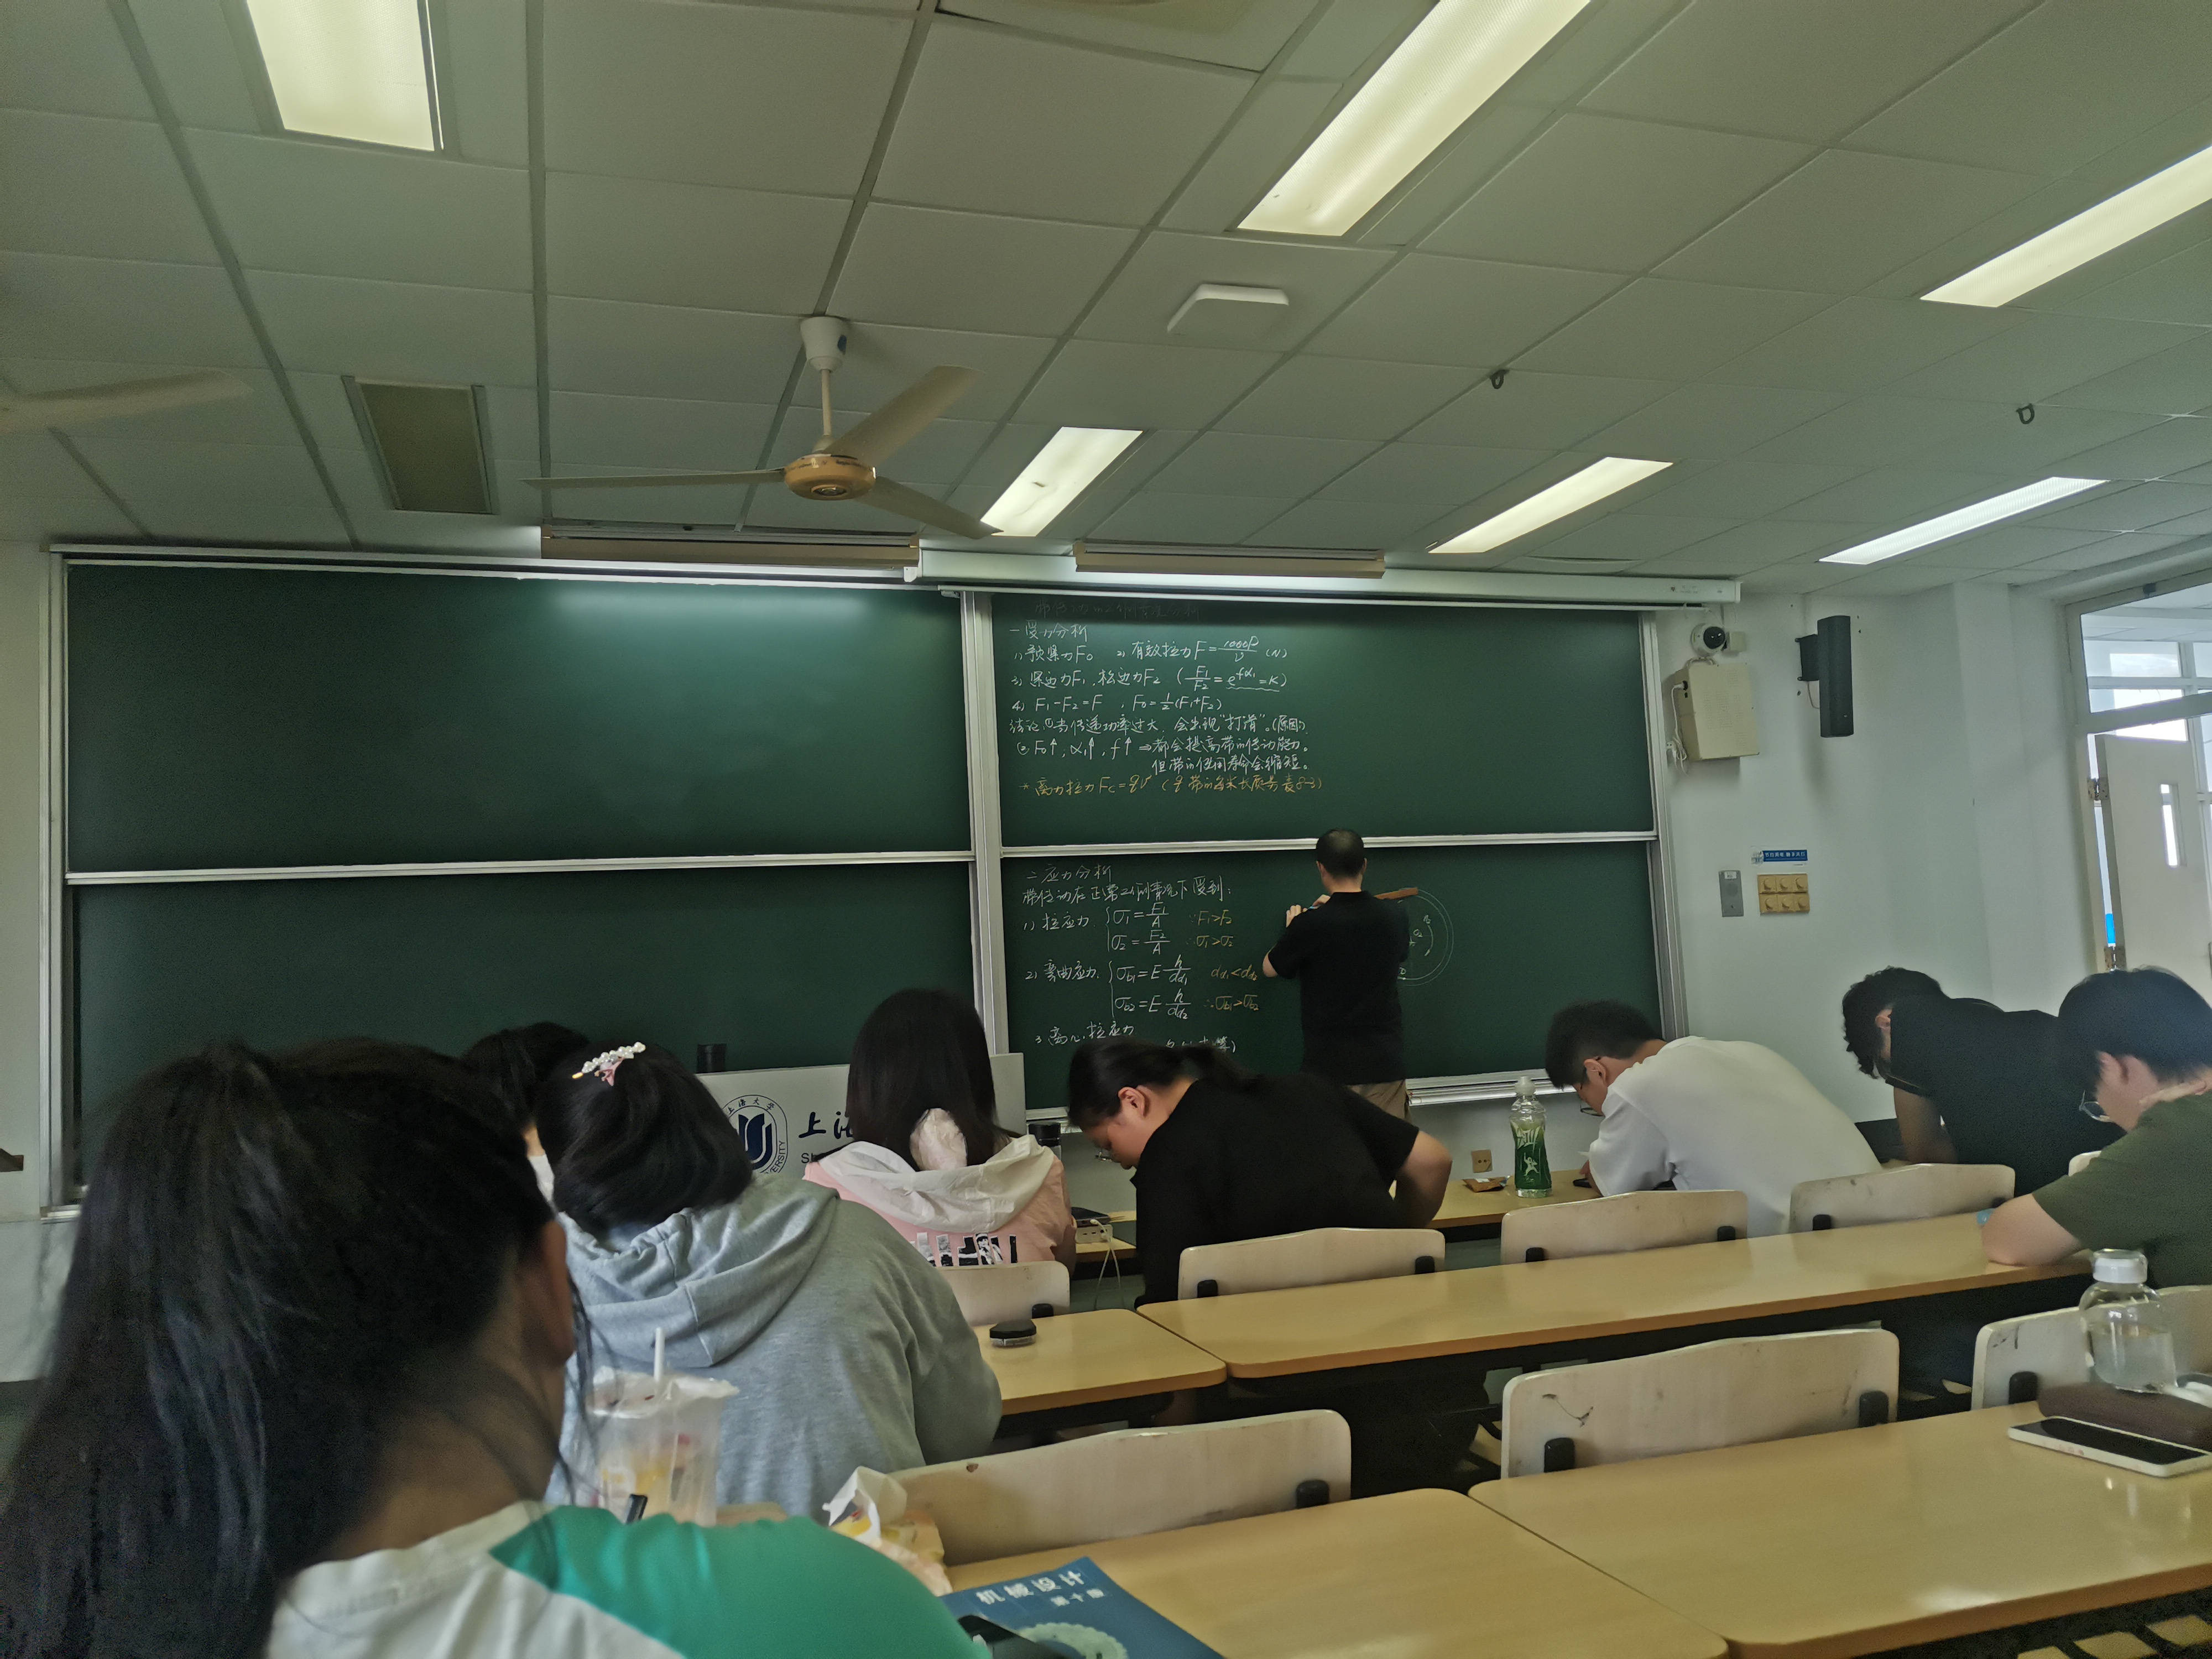 一 受力分析
1) 预紧力F₀ 2) 有效拉力F=1000P/v (N)
3) 紧边力F₁,松边力F₂ (F₁/F₂=e^fα₁=K)
4) F₁-F₂=F , F₀=½(F₁+F₂)
结论 ①当传递功率过大,会出现“打滑”。(原因)
②F₀↑, α₁↑, f↑ ⇒都会提高带的传动能力。
但带的使用寿命会缩短。
* 离力拉力Fc=qv² (q 带的每米长质量表8-3)
二 应力分析
带传动在正常工作情况下受到:
1) 拉应力 {σ₁=F₁/A ∵F₁>F₂
σ₂=F₂/A ∴σ₁>σ₂
2) 弯曲应力 {σb1=E h/dd1 dd1<dd2
σb2=E h/dd2 ∴σb1>σb2
3 离心拉应力
上海大学
上
机械设计
第十版